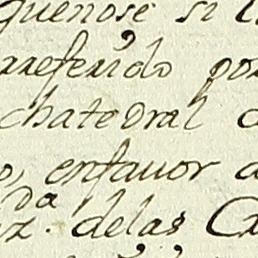 quenose si
rreferido por
chatedral
o, enfauor
da
z. delas